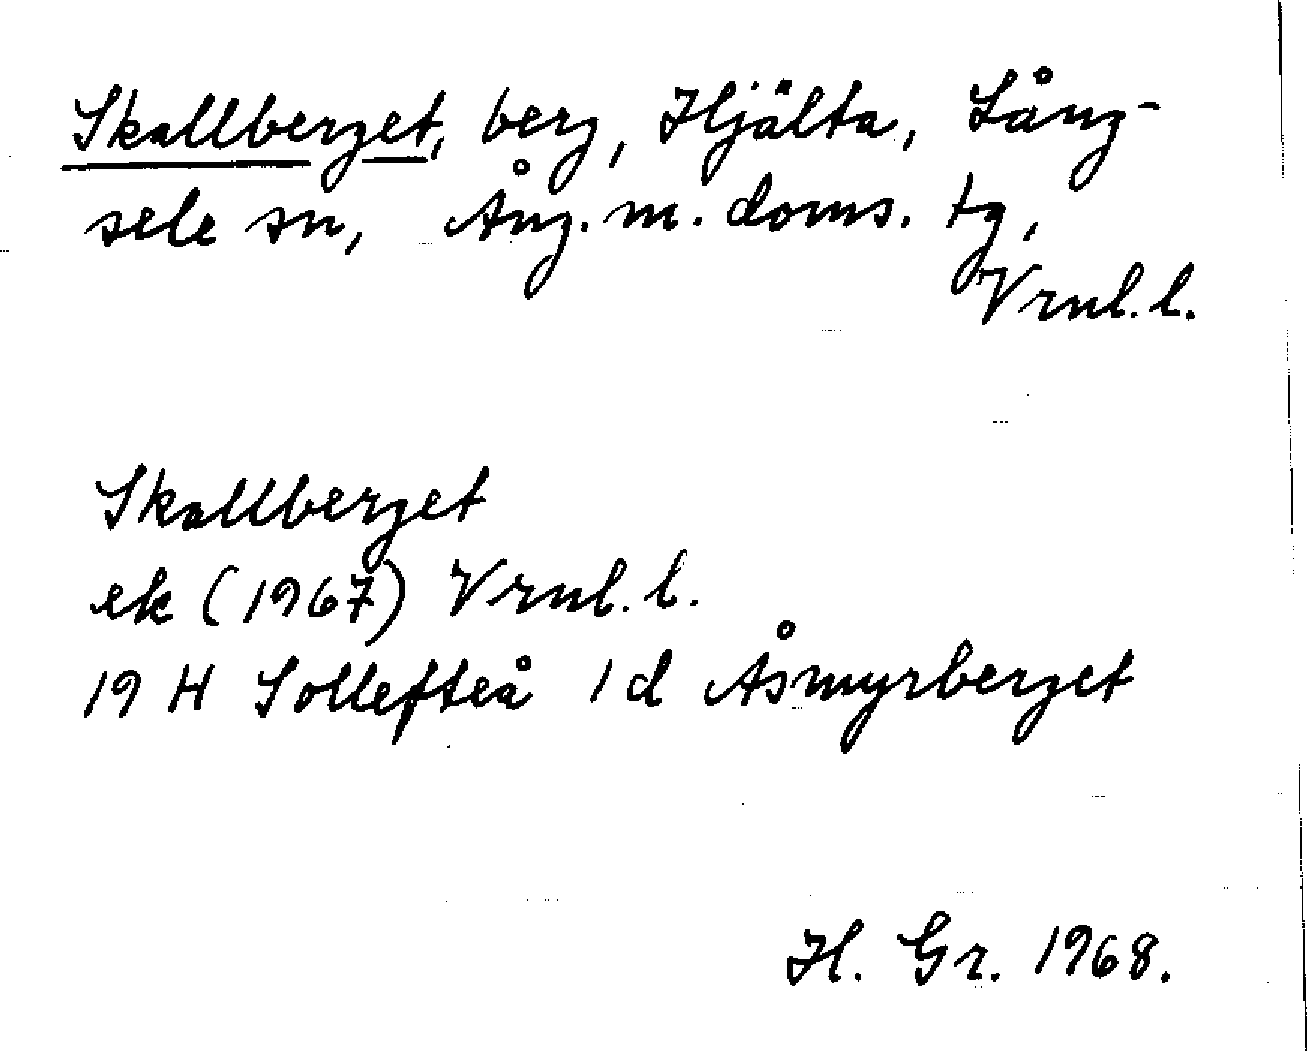 Skallberget, berg, Hjälta, Lång-
sele sn, Ång. m. doms. tg,
Vrnl. l.
Skallberget
ek (1967) Vrnl. l.
19 H Sollefteå 1 d Åsmyrberget
H. Gr. 1968.